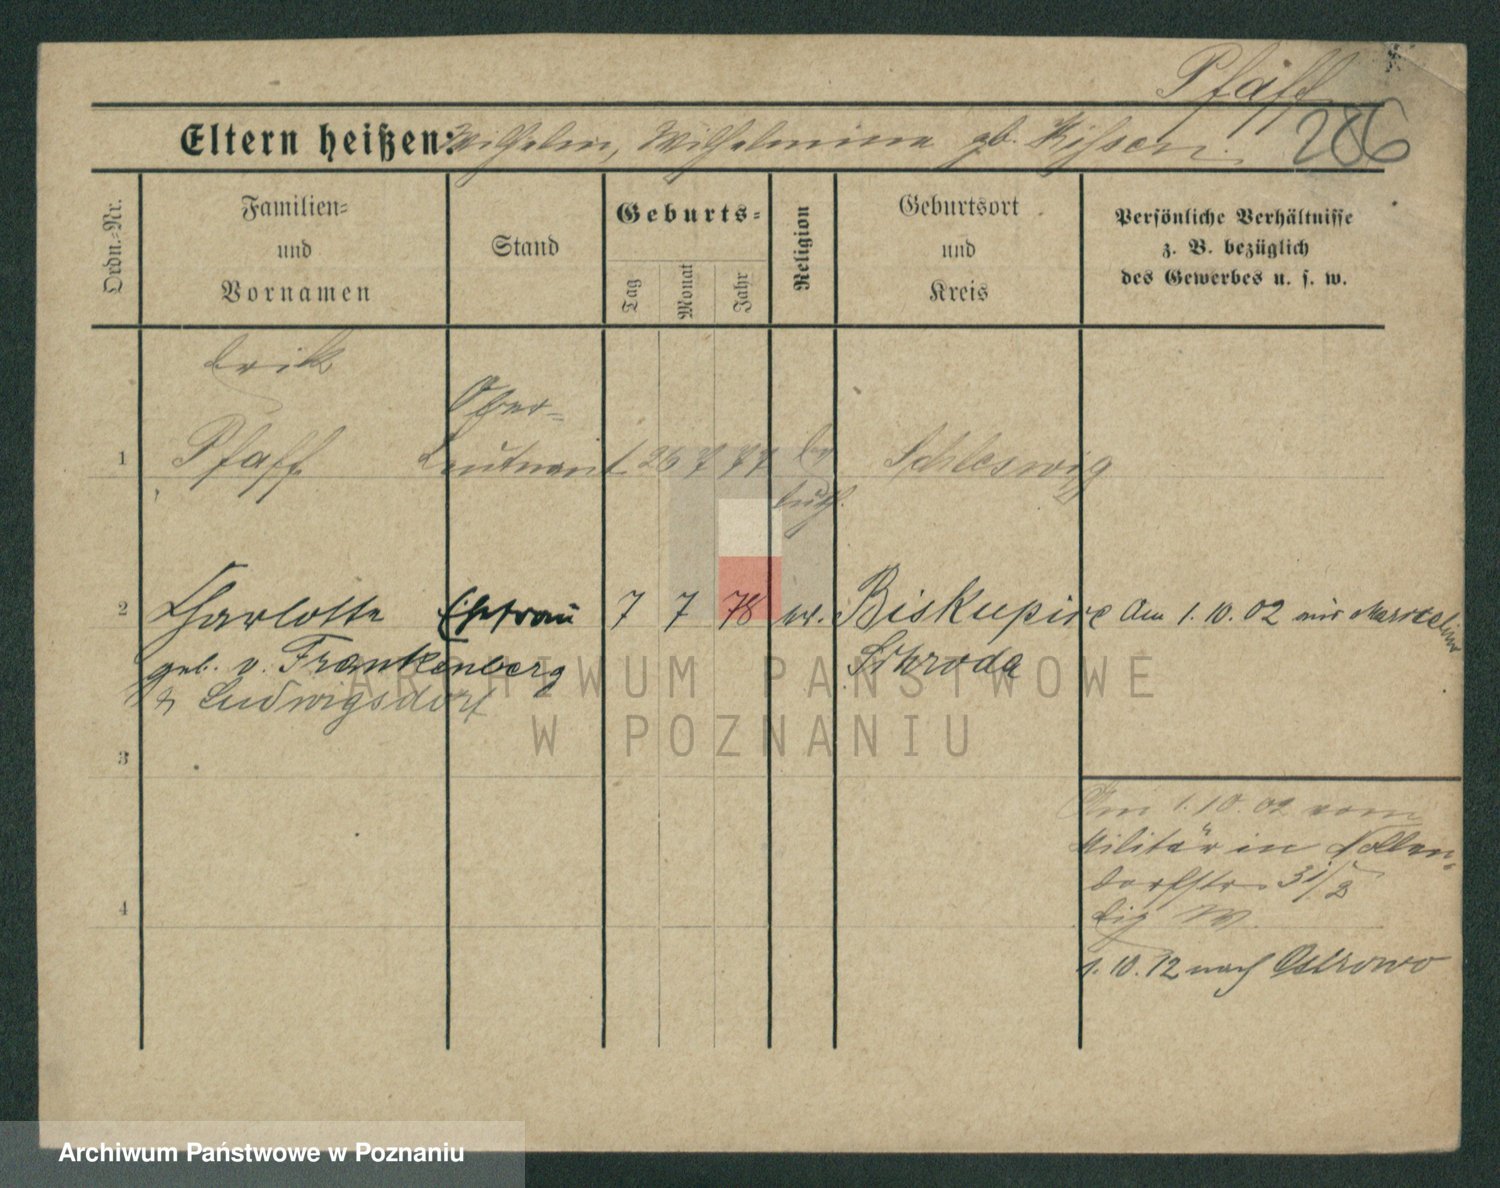 Pfaff
286
Eltern heißen: Wilhelm, Wilhelmina gb.
Ordn.-Nr.
Familien-
und
Vornamen
Stand
Geburts-
Tag
Monat
Jahr
Religion
Geburtsort
und
Kreis
Persönliche Verhältnisse
z. B. bezüglich
des Gewerbes u. s. w.
Erik
Ober-
1 Pfaff Leutnant 26 7 77 ev Schleswig
luth.
2 Charlotte Ehefrau 7 7 78 ev. Biskupice Am 1.10.02 aus
geb. v. Frankenberg Schroda
Ludwigsdorf
3
Am 1.10.02 vom
Militär in Nollen-
dorfstr. 31/2
4
1.10.12 nach Ostrowo
ARCHIWUM PAŃSTWOWE
W POZNANIU
Archiwum Państwowe w Poznaniu